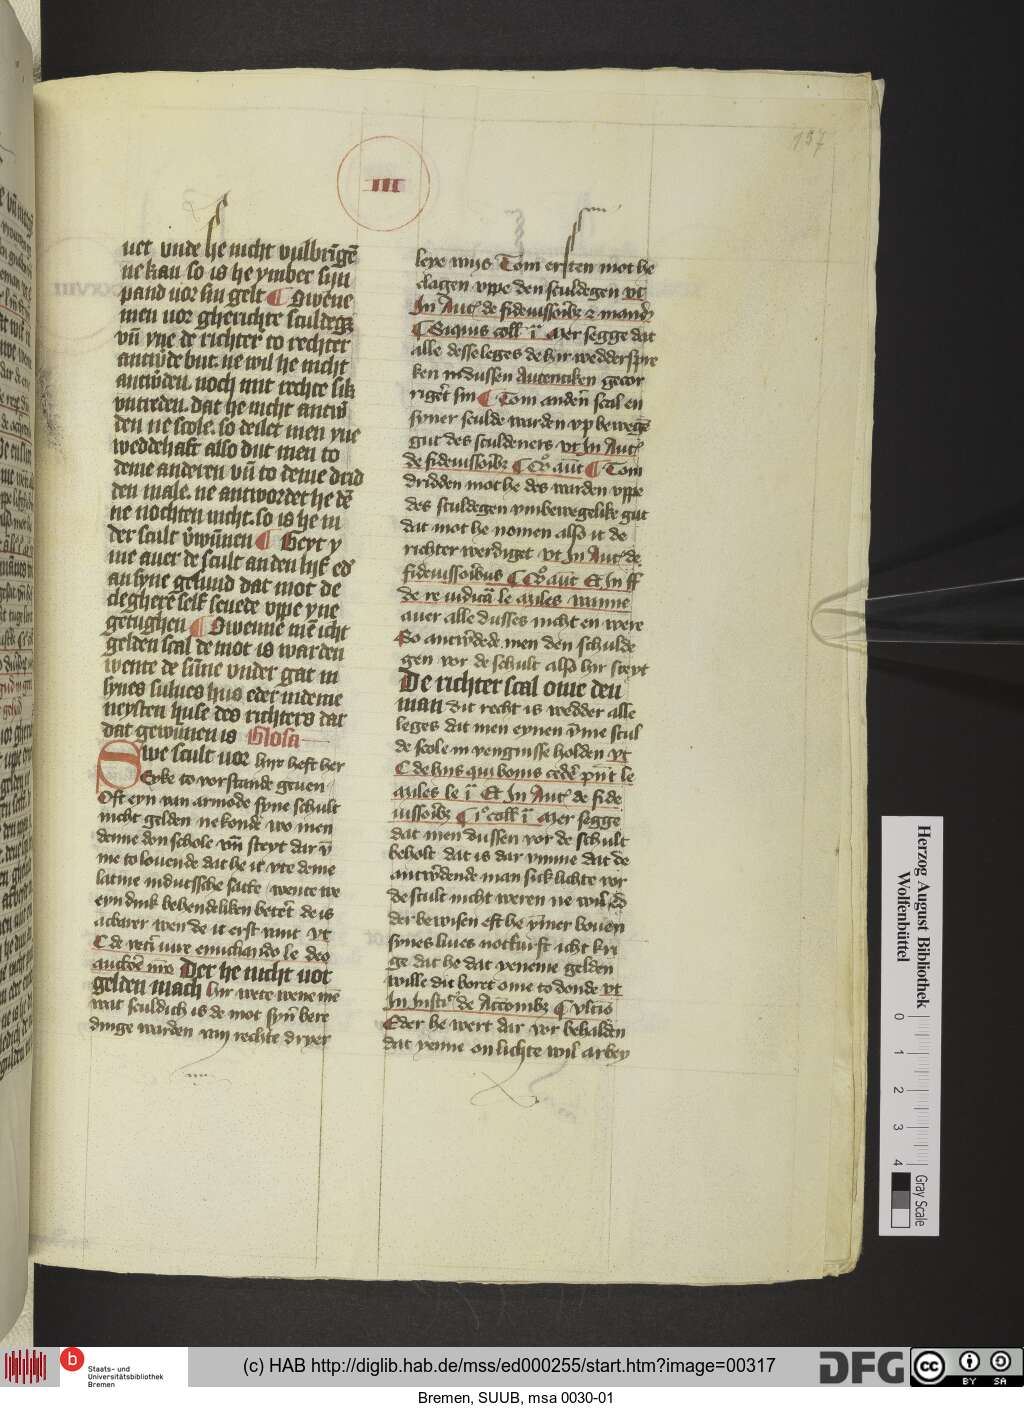 III
157
uet vnde he nicht vulbrīgē
ne kan so is he ymber syn
pand vor sin gelt ¶ Swēne
men vor gherichte sculdeget
vn̄ yne de richter to rechter
but. ne wil he nicht
noch mit rechte sik
vntreden. dat he nicht
den ne scole. so delet men yne
weddehaft also dut men to
deme anderen vn̄ to deme drid
den male. ne antwordet he dē
ne nochten nicht. so is he in
der scult ¶
me auer de scult an den
an syne gesund dat mot de
cleghere self seuede vppe yne
getughen ¶ Swenne mē icht
gelden scal de mot is warden
wente de sūne vnder gat in
synes sulues hus eder in deme
neysten huse des richters dat
dat gewūnen is Glosa
Swe scult vor hyr heft her
Eyke to vorstande geuen
Oft eyn van armode syne schult
nicht gelden ne konde wo men
denne den schole vm̄ steyt dar
me to louende dat he it vte deme
latine in dutssche sacke wente we
eyn dink behendeliken de is
wen de it erst vant vt
¶ de le deo
Der he nicht uot
gelden mach hir wete wene mē
wat sculdich is de mot syn bere
dinge warden van rechte dryer
leye wijs Tom ersten mot he
clagen vppe den sculdegen vt
In Aut de
¶ Siquis coll Mer segge dat
alle desse leges de hir wedderspre
ken in dussen Autentiken gecor
sin ¶ Tom andern scal en
syner sculde warden vp
gut des sculdeners vt In Aut
de ¶ ¶ Tom
dridden mot he des warden vppe
des sculdegen vmbewegelike gut
dat mot he nomen also it de
richter werdiget vt In Aut de
¶ Et In ff
de re le wanne
auer alle dusses nicht en were
So men den schulde
gen vor de schult also hir steyt
De richter scal ome den
man dit recht is wedder alle
leges dat men eynen vme scul
de scole in vengnisse holden vt
¶ de his qui bonis le
le Et In Aut de fide
¶ coll Mer segge
dat men dussen vor de schult
beholt dat is dar vmme dat de
man sick lichte vor
de scult nicht weren ne wil
der bewisen eft he bouen
synes liues notturft icht kri
ge dat he dat yeneme gelden
wille dit boret ome to donde vt
In de ¶
Eder he wert dar vor behalden
dat yenne on lichte wil arbey
Herzog August Bibliothek
Wolfenbüttel
0 1 2 3 4
Gray Scale
b
Staats- und
Universitätsbibliothek
Bremen
(c) HAB http://diglib.hab.de/mss/ed000255/start.htm?image=00317
DFG
cc BY SA
Bremen, SUUB, msa 0030-01